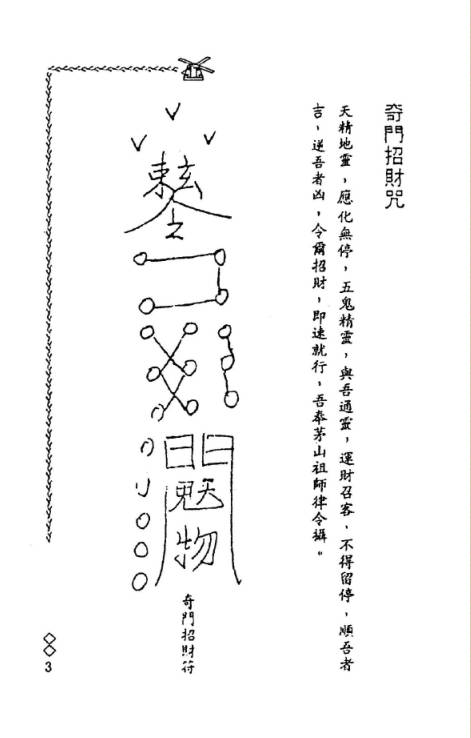 奇門招財咒
天精地靈，應化無停，五鬼精靈，與吾通靈，運財召客，不得留停，順吾者
吉，逆吾者凶，令爾招財，即速就行，吾奉茅山祖師律令攝。
鬼
物
奇門招財符
3